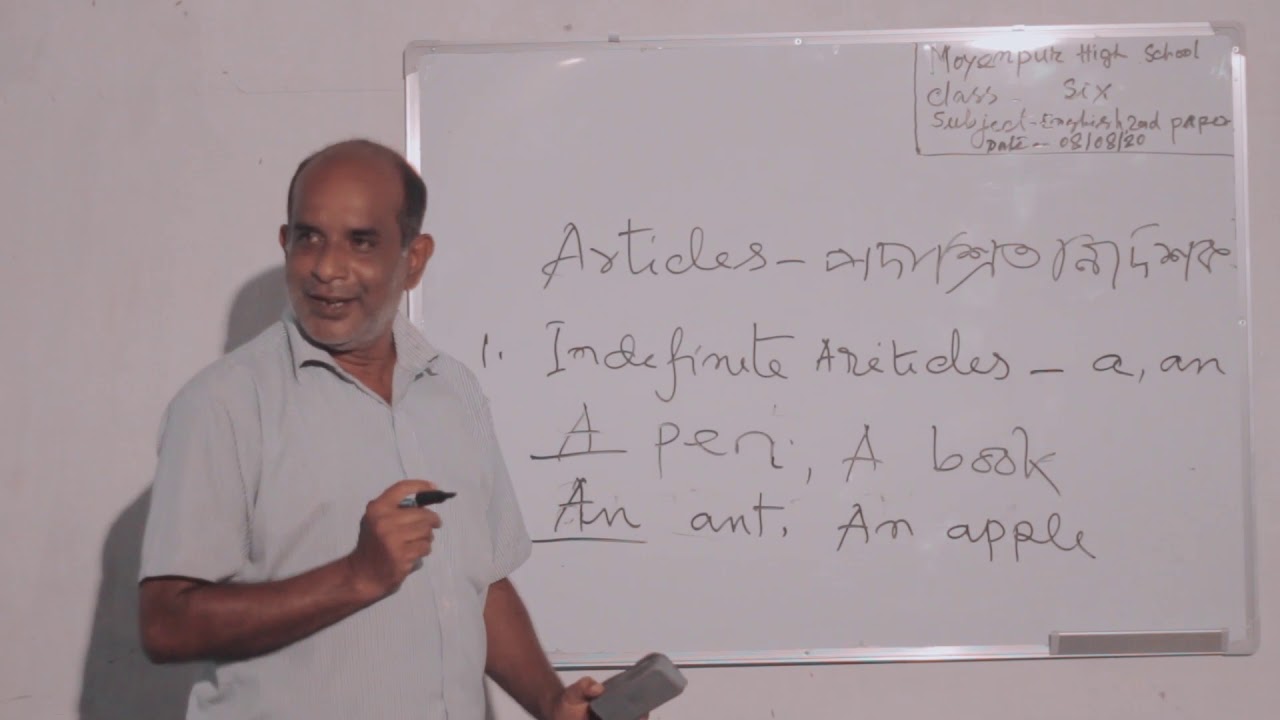 Moyenpur High School
class - Six
Subject - English 2nd paper
Date - 08/08/20
Articles - পদাশ্রিত নির্দেশক
1. Indefinite Areticles - a, an
A pen, A book
An ant. An apple